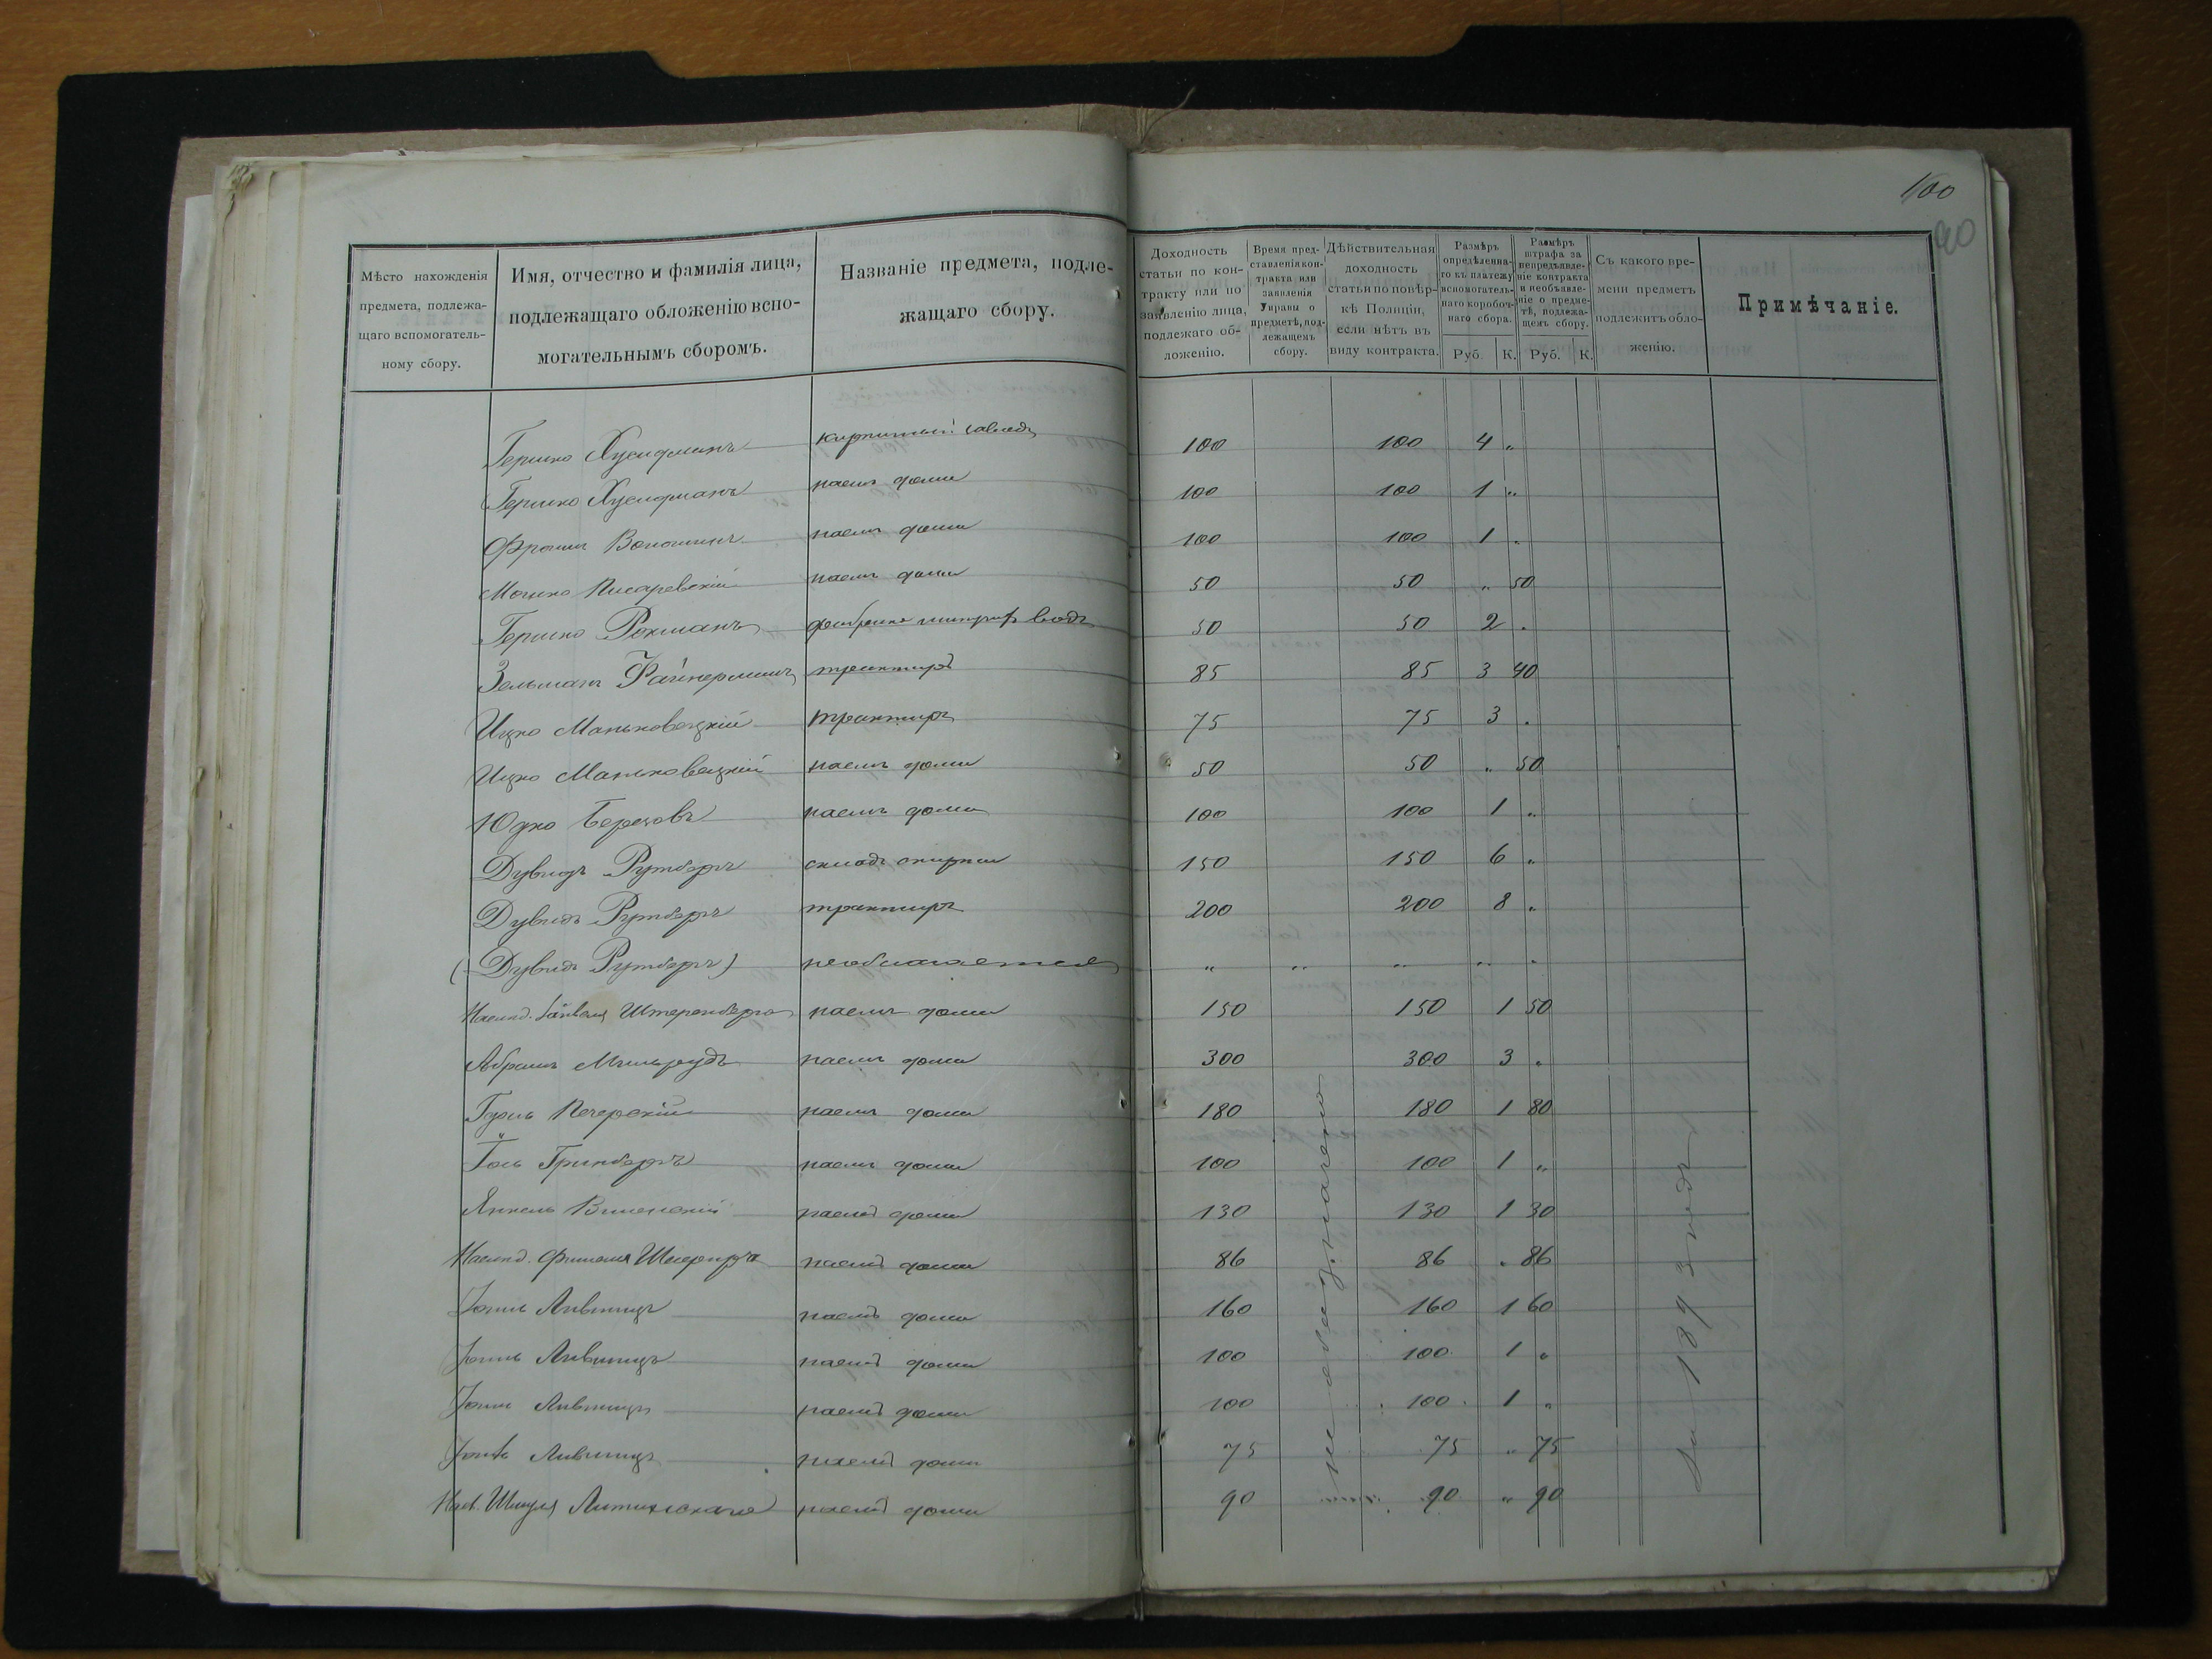 100
90
Мѣсто нахожденія
предмета, подлежа-
щаго вспомогатель-
ному сбору.
Имя, отчество и фамилія лица,
подлежащаго обложенію вспо-
могательнымъ сборомъ.
Названіе предмета, подле-
жащаго сбору.
Доходность
статьи по кон-
тракту или по
заявленію лица,
подлежаго об-
ложенію.
Время пред-
ставленія кон-
тракта или
заявленія
Управы о
предметѣ, под-
лежащемъ
сбору.
Дѣйствительная
доходность
статьи по повѣр-
кѣ Полиціи,
если нѣтъ въ
виду контракта.
Размѣръ
опредѣленна-
го къ платежу
вспомогатель-
наго коробоч-
наго сбора.
Руб. К.
Размѣръ
штрафа за
непредъявле-
ніе контракта
и необъявле-
ніе о предме-
тѣ, подлежа-
щемъ сбору.
Руб. К.
Съ какого вре-
мени предметъ
подлежитъ обло-
женію.
Примѣчаніе.
Гершко Хусидманъ кирпичный заводъ 100 100 4 "
Гершко Хусидманъ наемъ дома 100 100 1 "
Фроимъ Волошинъ наемъ дома 100 100 1 "
Мошко Писаревскій наемъ дома 50 50 " 50
Гершко Рохманъ фабрика минерал. водъ 50 50 2 "
Зельманъ Файнерманъ трактиръ 85 85 3 40
Ицко Маньковецкій трактиръ 75 75 3 "
Ицко Маньковецкій наемъ дома 50 50 " 50
Юдко Березовъ наемъ дома 100 100 1 "
Дувидъ Рутбергъ складъ 150 150 6 "
Дувидъ Рутбергъ трактиръ 200 200 8 "
(Дувидъ Рутбергъ) необлагается " " " " "
Наслед. Штеренберга наемъ дома 150 150 1 50
Абрамъ Мильрудъ наемъ дома 300 300 3 "
Гдаль Печерскій наемъ дома 180 180 1 80
Іось Гринбергъ наемъ дома 100 100 1 "
Янкель Виленскій наемъ дома 130 130 1 30
Наслед. наемъ дома 86 86 " 86
Іоиль Лившицъ наемъ дома 160 160 1 60
Іоиль Лившицъ наемъ дома 100 100 1 "
Іоиль Лившицъ наемъ дома 100 100 1 "
Іоиль Лившицъ наемъ дома 75 75 " 75
Насл. Шмуля Литинскаго наемъ дома 90 90 " 90
не обозначено
За 1893 годъ